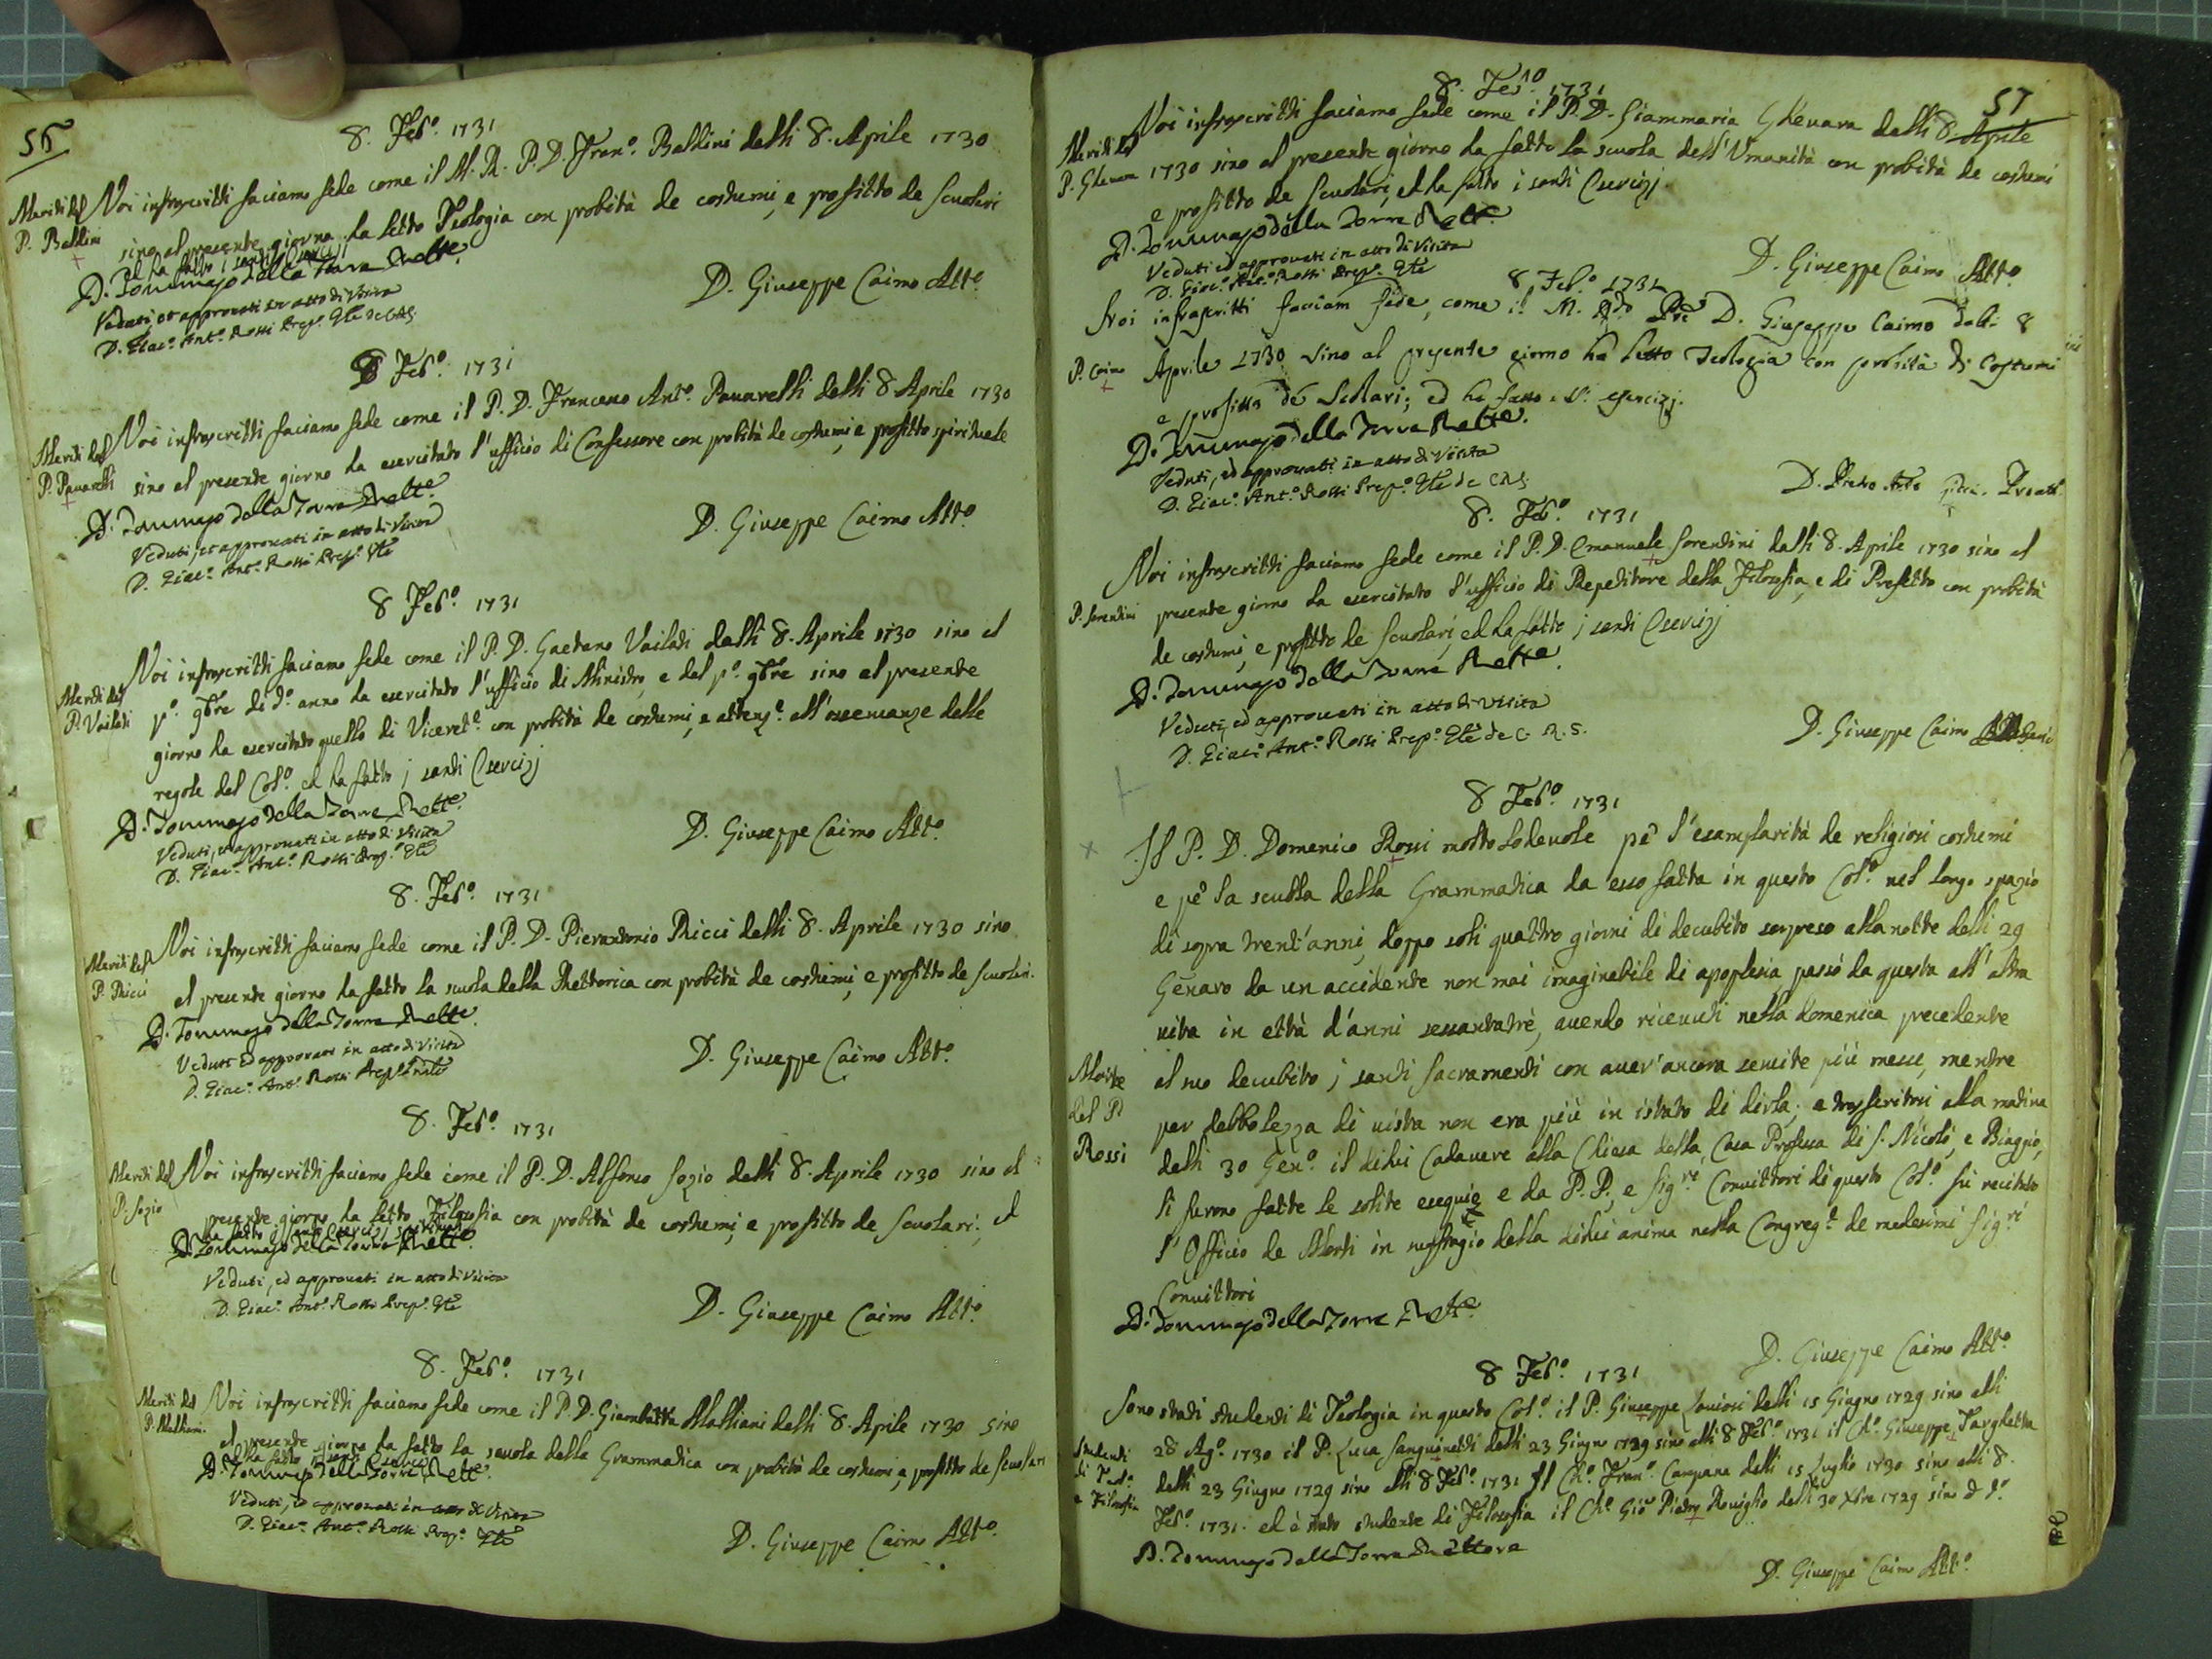 56
8. Feb.º 1731
Meriti del
P. Baldini
Noi infrascritti facciamo fede come il M. R. P. D. Fran.º Baldini dalli 8. Aprile 1730
sino al presente giorno ha letto Teologia con probità de costumi, e profitto de Scuolari
ed ha fatto i santi Esercizj
D. Tommaso della Torre Rett.e
Veduti, et approuati in atto di Visita
D. Giac.º Ant.º Rossi Prep.º Gle de CRS.
D. Giuseppe Caimo Att.º
8 Feb.º 1731
Meriti del
P. Panarelli
Noi infrascritti facciamo fede come il P. D. Francesco Ant.º Panarelli dalli 8 Aprile 1730
sino al presente giorno ha esercitato l'ufficio di Confessore con probità de costumi, e profitto spirituale
D. Tommaso della Torre Rett.e
Veduti, et approuati in atto di Visita
D. Giac.º Ant.º Rossi Prep.º Gle
D. Giuseppe Caimo Att.º
8 Feb.º 1731
Meriti del
P. Vailati
Noi infrascritti facciamo fede come il P. D. Gaetano Vailati dalli 8. Aprile 1730 sino al
p.º 9bre di d.º anno ha esercitato l'ufficio di Ministro, e dal p.º 9bre sino al presente
giorno ha esercitato quello di Viceret.e con probità de costumi, e attenz.e all'osseruanza delle
regole del Col.º ed ha fatto i santi Esercizj
D. Tommaso della Torre Rett.e
Veduti, et approuati in atto di Visita
D. Giac.º Ant.º Rossi Prep.º Gle
D. Giuseppe Caimo Att.º
8. Feb.º 1731
Meriti del
P. Ricci
Noi infrascritti facciamo fede come il P. D. Pierantonio Ricci dalli 8. Aprile 1730 sino
al presente giorno ha fatto la scuola della Rettorica con probità de costumi, e profitto de Scuolari.
D. Tommaso della Torre Rett.e
Veduti ed approuati in atto di Visita
D. Giac.º Ant.º Rossi Prep.º
D. Giuseppe Caimo Att.º
8. Feb.º 1731
Meriti del
P. Sozio
Noi infrascritti facciamo fede come il P. D. Alfonso Sozio dalli 8. Aprile 1730 sino al
presente giorno ha letto Filosofia con probità de costumi, e profitto de Scuolari, ed
ha fatto i santi Esercizj
D. Tommaso della Torre Rett.e
Veduti, ed approuati in atto di Visita
D. Giac.º Ant.º Rossi Prep.º Gle
D. Giuseppe Caimo Att.º
8. Feb.º 1731
Meriti del
P. Malliani
Noi infrascritti facciamo fede come il P. D. Giambatta Malliani dalli 8. Aprile 1730 sino
al presente giorno ha fatto la scuola della Grammatica con probità de costumi e, profitto de Scuolari
ed ha fatto i santi Esercizj
D. Tommaso della Torre Rett.e
Veduti, ed approuati in atto di Visita
D. Giac.º Ant.º Rossi Prep.º Gle
D. Giuseppe Caimo Att.º
57
8. Feb.º 1731
Meriti del
P. Gheuara
Noi infrascritti facciamo fede come il P. D. Giammaria Gheuara dalli 8 Aprile
1730 sino al presente giorno ha fatto la scuola dell'Vmanità con probità de costumi
e profitto de Scuolari, ed ha fatto i santi Esercizj.
D. Tommaso della Torre Rett.e
Veduti ed approuati in atto di Visita
D. Giac.º Ant.º Rossi Prep.º Gle
D. Giuseppe Caimo Att.º
8 Feb.º 1731
P. Caimo
Noi infrascritti facciam fede, come il M. Rdo Pre D. Giuseppe Caimo dalli 8
Aprile 1730 sino al presente giorno ha letto Teologia con probità di Costumi
e profitto de Scolari; ed ha fatto i S. esercizj.
D. Tommaso Della Torre Rett.e
Veduti, ed approuati in atto di Visita
D. Giac.º Ant.º Rossi Prep.º Gle de CRS.
D. Pietro Ant.º Proatt.
8. Feb.º 1731
P. Sorentini
Noi infrascritti facciamo fede come il P. D. Emanuele Sorentini dalli 8. Aprile 1730 sino al
presente giorno ha esercitato l'ufficio di Repetitore della Filosofia, e di Prefetto con probità
de costumi, e profitto de Scuolari, ed ha fatto i santi Esercizj
D. Tommaso della Torre Rett.e
Veduti, ed approuati in atto di Visita
D. Giac.º Ant.º Rossi Prep.º Gle de C. R. S.
D. Giuseppe Caimo
8 Feb.º 1731
Morte
del P.
Rossi
Il P. D. Domenico Rossi molto lodeuole pe' l'esamplarità de religiosi costumi
e pe' la scuola della Grammatica da esso fatta in questo Col.º nel longo spazio
di sopra trent'anni, doppo soli quattro giorni di decubito sorpreso alla notte delli 29
Genaro da un accidente non mai imaginabile di apoplesia passò da questa all'altra
uita in ettà d'anni sessantatrè, auendo riceuuti nella domenica precedente
al suo decubito i santi Sacramenti con auer'ancora sentite più messe, mentre
per debbolezza di uista non era più in istato di dirla; e trasferitosi alla matina
delli 30 Gen.º il dilui Cadauere alla Chiesa della Casa Professa di S. Nicolò, e Biaggio,
li furono fatte le solite esequie e da P.P., e Sig.ri Conuittori di questo Col.º fù recitato
l'Officio de Morti in suffragio della dilui anima nella Congreg.e de medesimi Sig.ri
Conuittori
D. Tommaso della Torre Rett.e
D. Giuseppe Caimo Att.º
8 Feb.º 1731
Studenti
di Teol.a
e Filosofia
Sono stati studenti di Teologia in questo Col.º il P. Giuseppe dalli 15 Giugno 1729 sino alli
28 Ag.º 1730 il P. Luca Sanguinetti dalli 23 Giugno 1729 sino alli 8 Feb.º 1731 il Ch.º Giuseppe Targhetta
dalli 23 Giugno 1729 sino alli 8 Feb.º 1731 Il Ch.º Fran.º Campana dalli 15 Luglio 1730 sino alli 8.
Feb.º 1731. ed è stato studente di Filosofia il Ch.º Gio Pietro Rouiglio dalli 30 Xbre 1729 sino d d.º
D. Tommaso della Torre Rettore
D. Giuseppe Caimo Att.º